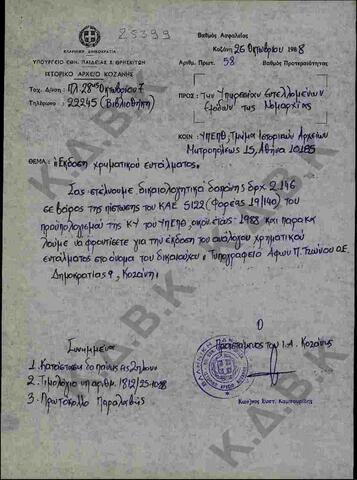 25399
ΕΛΛΗΝΙΚΗ ΔΗΜΟΚΡΑΤΙΑ
ΥΠΟΥΡΓΕΙΟ ΕΘΝ. ΠΑΙΔΕΙΑΣ & ΘΡΗΣΚ/ΤΩΝ
ΙΣΤΟΡΙΚΟ ΑΡΧΕΙΟ ΚΟΖΑΝΗΣ
Ταχ. Δ/νση: Πλ. 28ης Οκτωβρίου 7
Τηλέφωνο: 22245 (Βιβλιοθήκη)
Βαθμός Ασφαλείας
Κοζάνη 26 Οκτωβρίου 1988
Αριθμ. Πρωτ. 58 Βαθμός Προτεραιότητας
ΠΡΟΣ: Την Υπηρεσίαν Εντελλομένων
Εξόδων της Νομαρχίας
ΚΟΙΝ: ΥΠΕΠΘ, Τμήμα Ιστορικών Αρχείων
Μητροπόλεως 15, Αθήνα 10185
ΘΕΜΑ: «Έκδοση χρηματικού εντάλματος»
Σας στέλνουμε δικαιολογητικά δαπάνης δρχ. 2.146
σε βάρος της πίστωσης του ΚΑΕ 5122 (Φορέας 19/140) του
προϋπολογισμού της ΚΥ του ΥΠΕΠΘ, οικον. έτους 1988 και παρακα
λούμε να φροντίσετε για την έκδοση του ανάλογου χρηματικού
εντάλματος στο όνομα του δικαιούχου: Τυπογραφείο Αφων Π. Τζώνου Ο.Ε.
Δημοκρατίας 9, Κοζάνη.
Συνημμένα
1. Κατάσταση δαπάνης εις διπλούν
2. Τιμολόγιο υπ' αριθμ. 1812/25-10-88
3. Πρωτόκολλο Παραλαβής
Ο
Προϊστάμενος του Ι.Α. Κοζάνης
Κων/νος Ευστ. Καμπουρίδης
Κ.Δ.Β.Κ